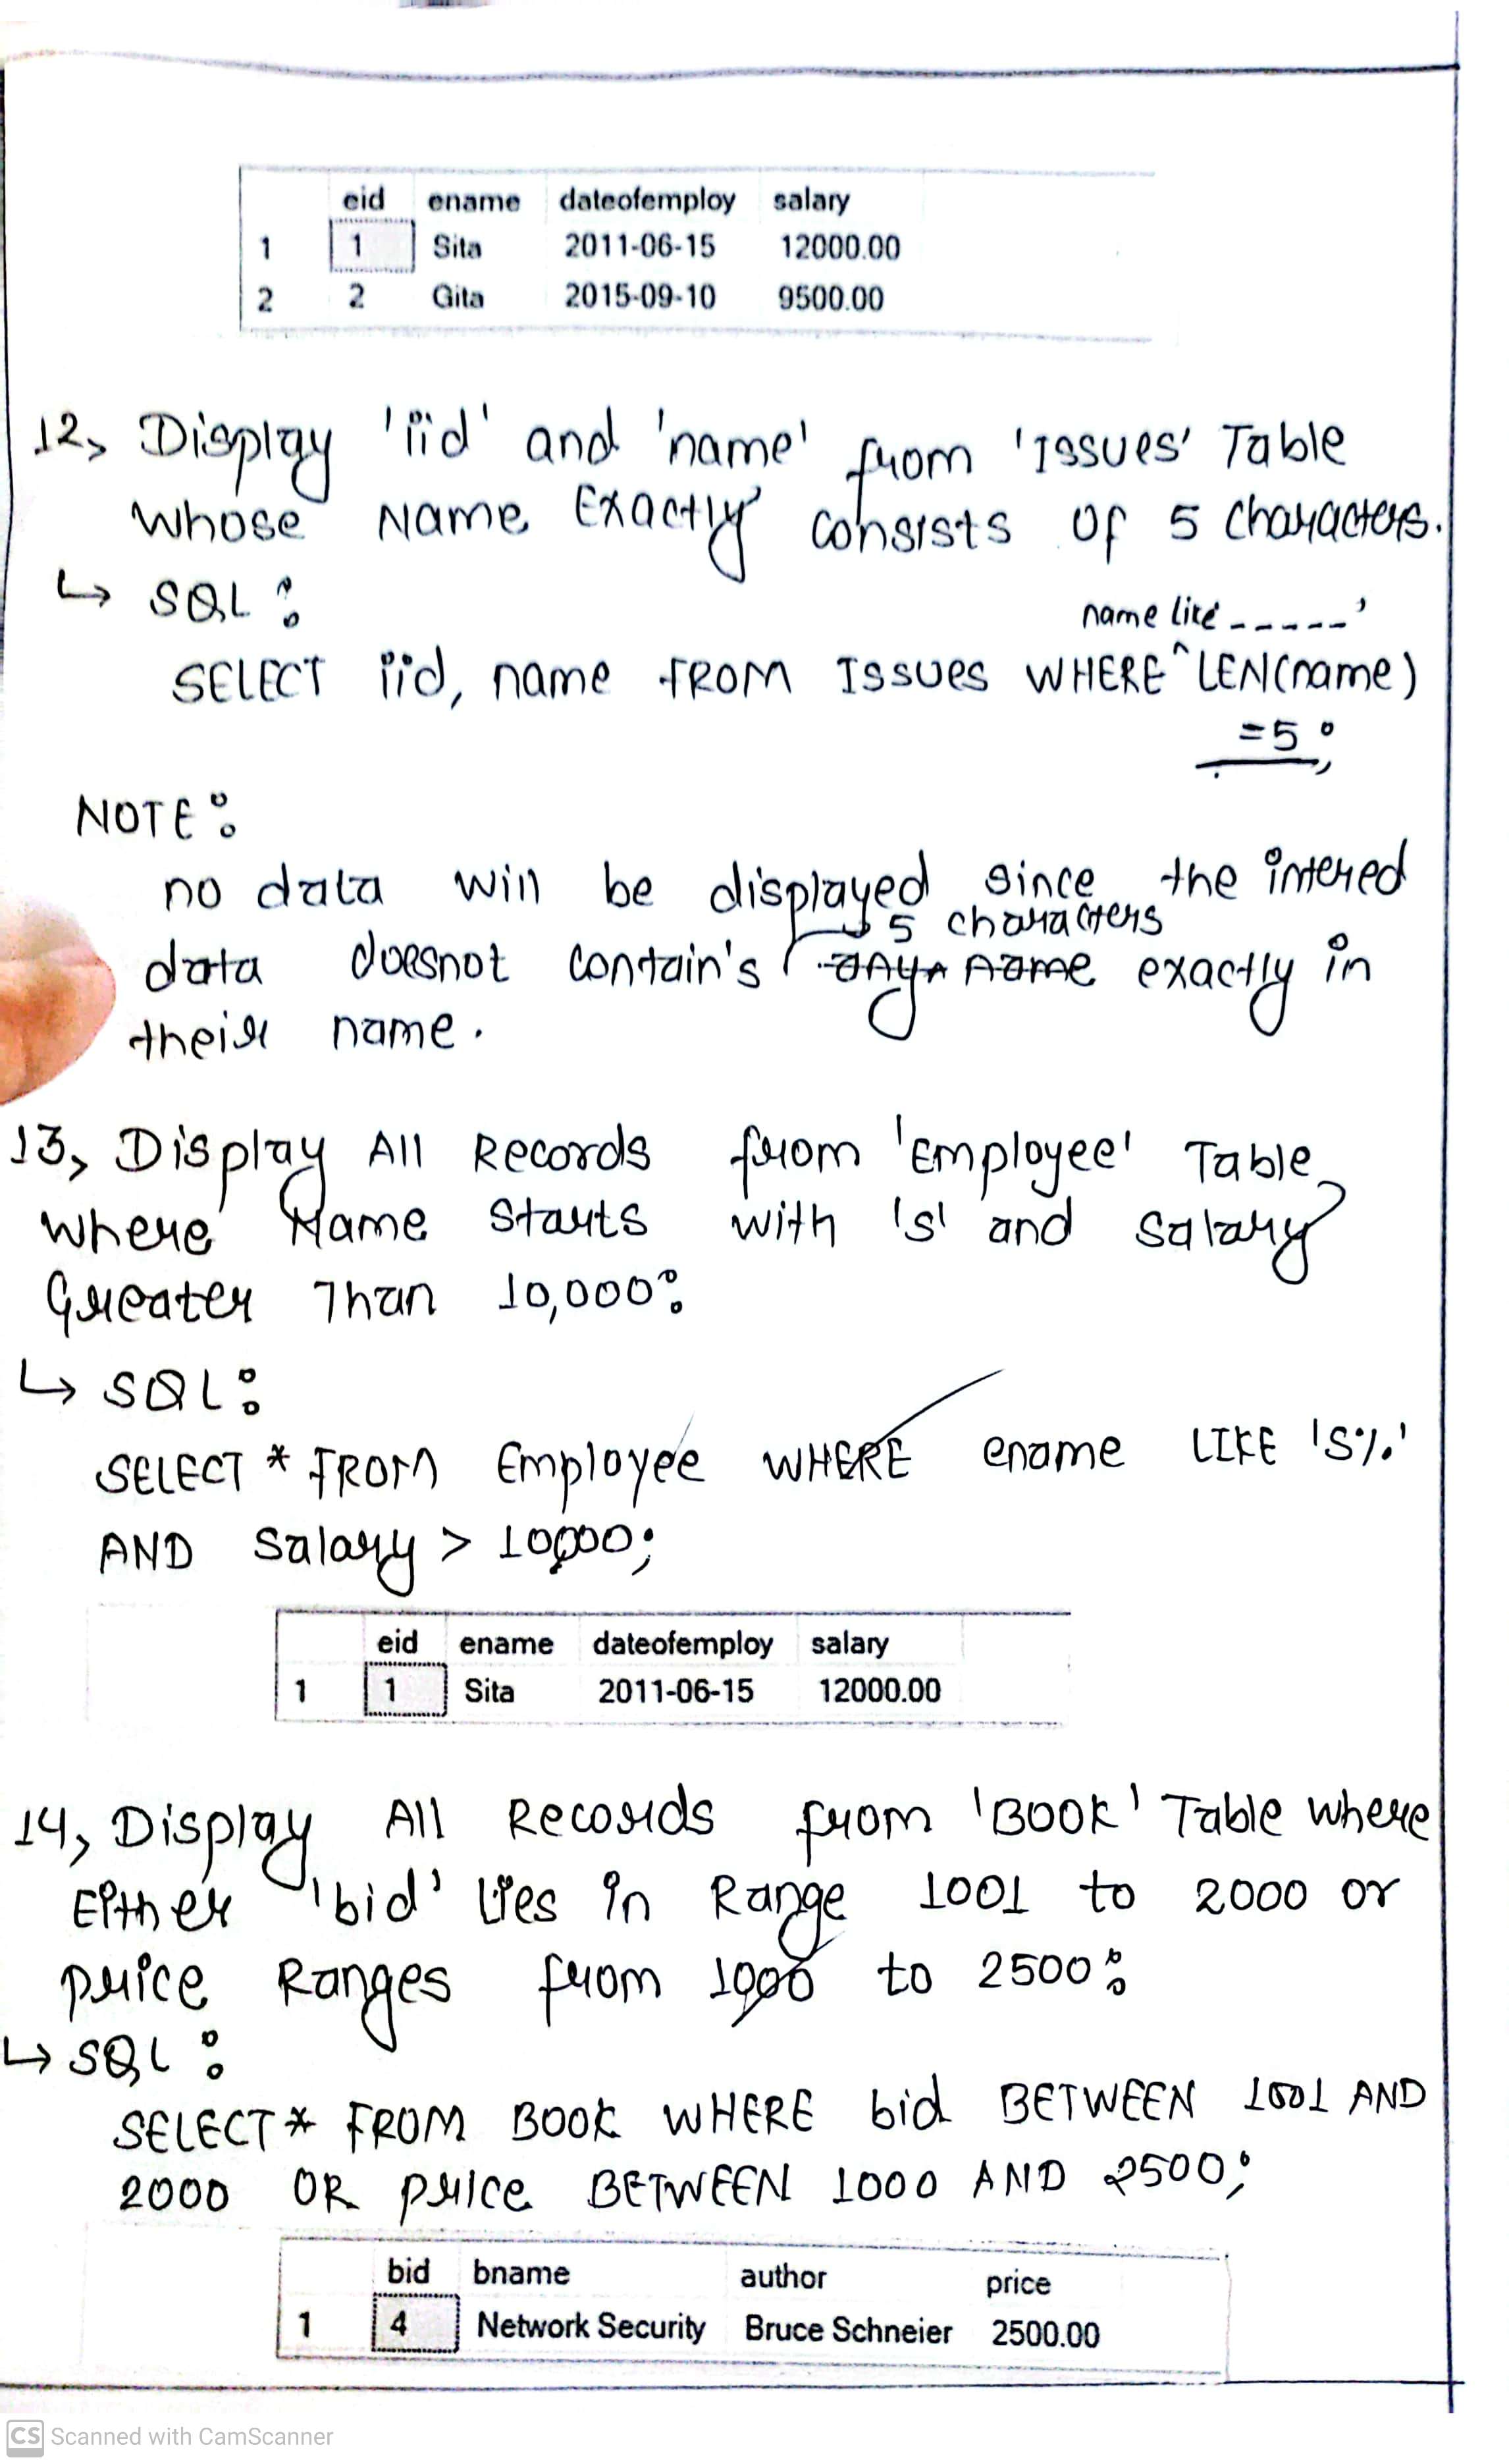 eid ename dateofemploy salary
1 1 Sita 2011-06-15 12000.00
2 2 Gita 2015-09-10 9500.00
12, Display 'iid' and 'name' from 'Issues' Table
whose Name Exactly consists of 5 characters.
↳ SQL:
name like '_____'
SELECT iid, name FROM Issues WHERE ^ LEN(name)
=5;
NOTE:
no data will be displayed since the intered
5 characters
data doesnot contain's any name exactly in
their name.
13, Display All Records from 'Employee' Table
where Name Starts with 's' and salary
Greater Than 10,000:
↳ SQL:
SELECT * FROM Employee WHERE ename LIKE 'S%'
AND Salary > 10000;
eid ename dateofemploy salary
1 1 Sita 2011-06-15 12000.00
14, Display All Records from 'BOOK' Table where
Either 'bid' lies in Range 1001 to 2000 or
price Ranges from 1000 to 2500:
↳ SQL:
SELECT * FROM BOOK WHERE bid BETWEEN 1001 AND
2000 OR price BETWEEN 1000 AND 2500;
bid bname author price
1 4 Network Security Bruce Schneier 2500.00
CS Scanned with CamScanner